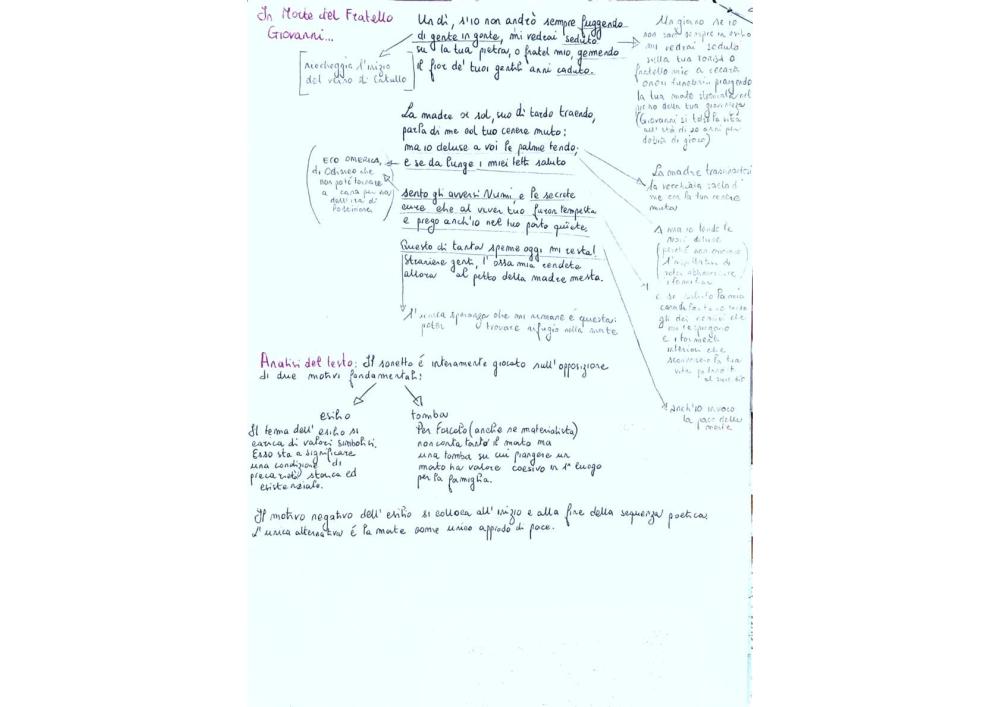 In Morte del Fratello
Giovanni...
Un dì, s'io non andrò sempre fuggendo
di gente in gente, mi vedrai seduto
su la tua pietra, o fratel mio, gemendo
il fior de' tuoi gentili anni caduto.
riecheggia l'inizio
del verso di Catullo
Un giorno se io
non sarò sempre in esilio
mi vedrai seduto
sulla tua tomba o
fratello mio a recare
onori funebri piangendo
la tua morte nel
pieno della tua giovinezza
(Giovanni si tolse la vita
all'età di 20 anni per
debiti di gioco)
La madre or sol, suo dì tardo traendo,
parla di me col tuo cenere muto:
ma io deluse a voi le palme tendo;
e se da lunge i miei tetti saluto
ECO OMERICA,
di Odisseo che
non poté tornare
a casa per via
dell'ira di
Poseidone
La madre trascinandosi
la vecchiaia parla di
me con la tua cenere
muta
sento gli avversi Numi, e le secrete
cure che al viver tuo furon tempesta
e prego anch'io nel tuo porto quiete.
ma io tendo le
mani deluse
(perché non ancora
di
poter abbracciare
i familiari
Questo di tanta speme oggi mi resta!
Straniere genti, l'ossa mia rendete
allora al petto della madre mesta.
e se saluto la mia
casa da lontano sento
gli dei nemici che
mi respingono
e i tormenti
interiori che
sconvolsero la tua
vita
L'unica speranza che mi rimane è questa:
poter trovare rifugio nella morte
anch'io invoco
la pace della
morte
Analisi del testo: Il sonetto é interamente giocato sull'opposizione
di due motivi fondamentali:
esilio
Il tema dell'esilio si
carica di valori simbolici.
Esso sta a significare
una condizione di
precarietà storica ed
esistenziale.
tomba
Per Foscolo (anche se materialista)
non conta tanto il morto ma
una tomba su cui piangere un
morto ha valore coesivo in 1° luogo
per la famiglia.
Il motivo negativo dell'esilio si colloca all'inizio e alla fine della sequenza poetica.
L'unica alternativa é la morte come unico approdo di pace.